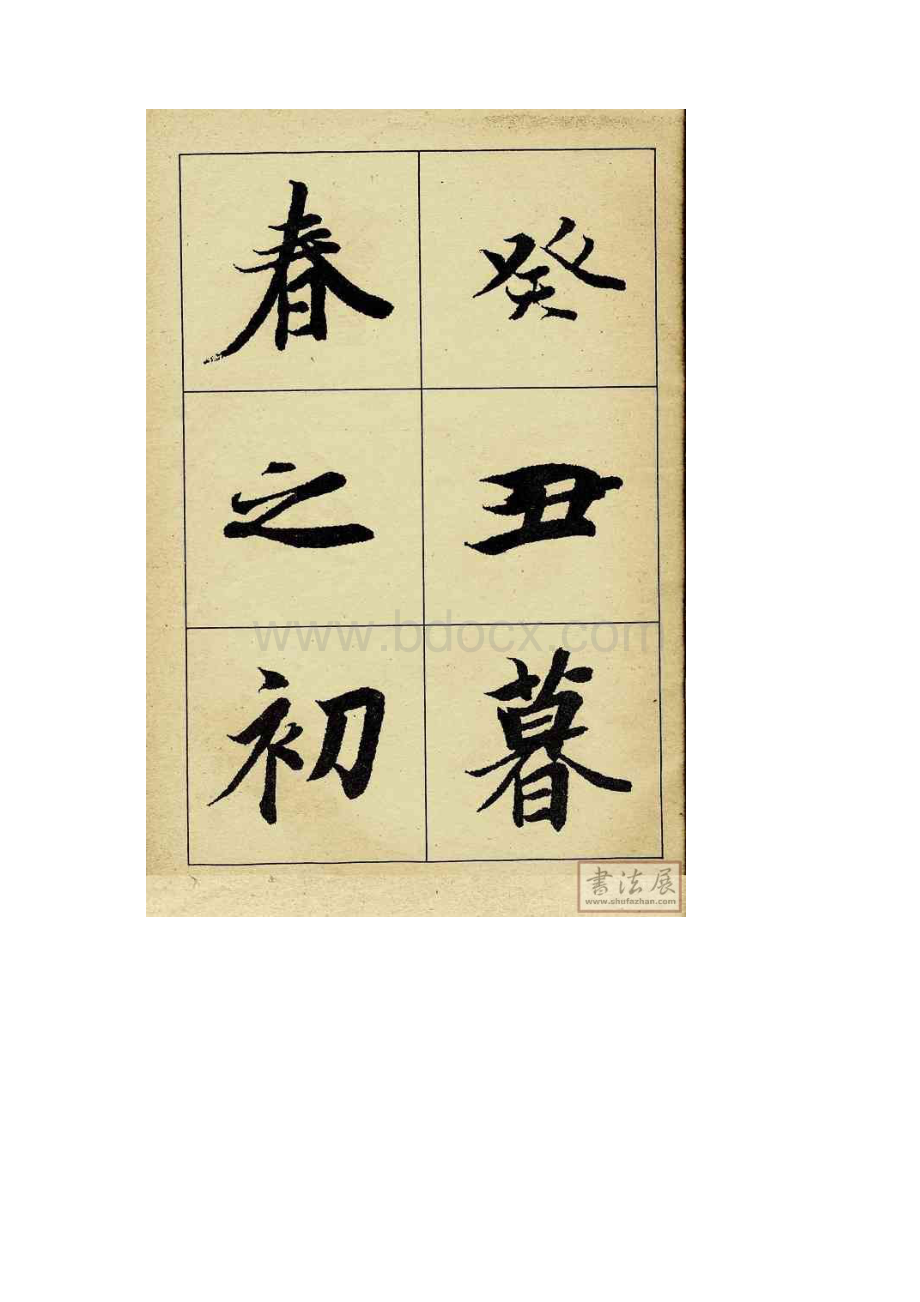 癸丑暮
春之初
www.bdocx.com
書法展
www.shufazhan.com